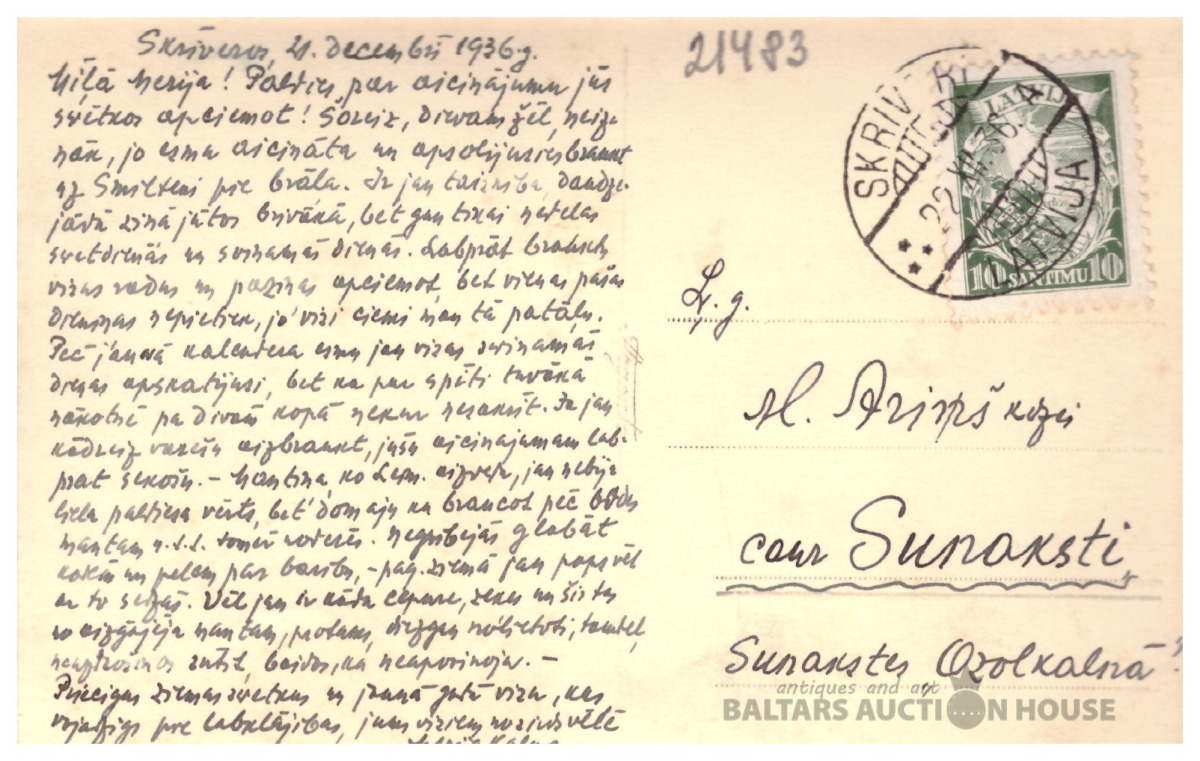 Skrīveros, 21. decembrī 1936.g.
Mīļā Merija! Paldies par aicinājumu jūs
svētkos apciemot! Šoreiz, Dievamžēl, neize-
nāk, jo esmu aicināta un apsolījusies braukt
uz Smilteni pie brāļa. Ir jau taisnība, daudze-
jādā ziņā jūtos brīvāka, bet gan tikai nedēļas
svētdienās un svinamās dienās. Labprāt brauktu
visus radus un paziņas apciemot, bet vienas pašas
dieniņas nepietiek, jo visi ciemi man tā patālu.
Pēc jaunā kalendera esmu jau visas svinamās
dienas apskatījusi, bet ka par spīti tuvākā
nākotnē pa divām kopā nekur nesanāk. Ja jau
kādreiz varēšu aizbraukt, jūsu aicinājumam lab-
prāt sekošu. – Mantiņa, ko aizvedu, jau nebija
liela paldiesa vērts, bet domāju ka braucot pēc
mantām u.t.t. tomēr noderēs. Negribējās glabāt
kokiem un pelēm par barību, – pag. ziemā jau paps vēl
ar to sedzās. Vēl jau ir kāda cepure, zeķes un šis tas
no aizgājēja mantām, protams, diezgan nolietoti, tamdēļ
neuzdrošinos sūtīt, baidos, ka neapvainoju. –
Priecīgus ziemassvētkus un jaunā gadā visu, kas
vajadzīgs pie labklājības, jums visiem no sirds vēlē
21483
SKRĪVERI
22 XII. 36.
LATVIJA
LATVIJA
10 SANTIMU 10
Ļ. g.
M. Ariņš kdzei
caur Sunaksti,
Sunakstes Ozolkalnā
antiques and art
BALTARS AUCTION HOUSE